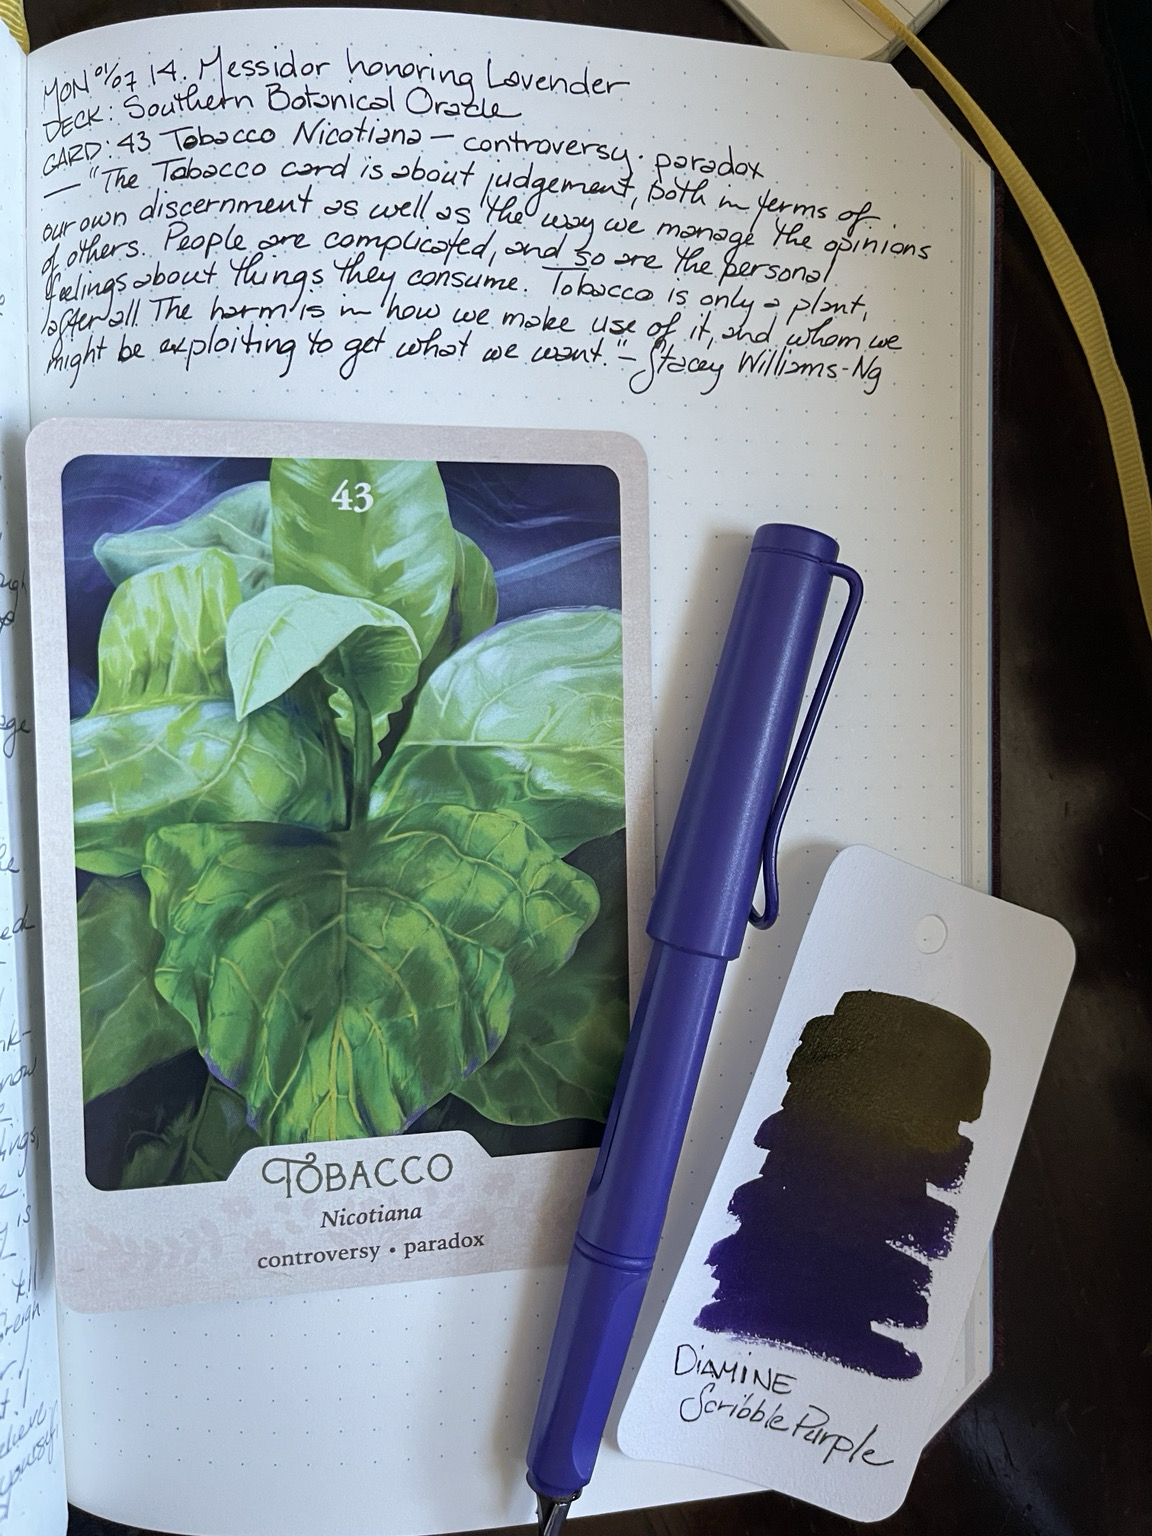 MON 01/07 14. Messidor honoring Lavender
DECK: Southern Botanical Oracle
CARD: 43 Tobacco Nicotiana — controversy · paradox
— "The Tobacco card is about judgement, both in terms of
our own discernment as well as the way we manage the opinions
of others. People are complicated, and so are the personal
feelings about things they consume. Tobacco is only a plant,
after all. The harm is in how we make use of it, and whom we
might be exploiting to get what we want." - Stacey Williams-Ng
43
TOBACCO
Nicotiana
controversy • paradox
DIAMINE
Scribble Purple